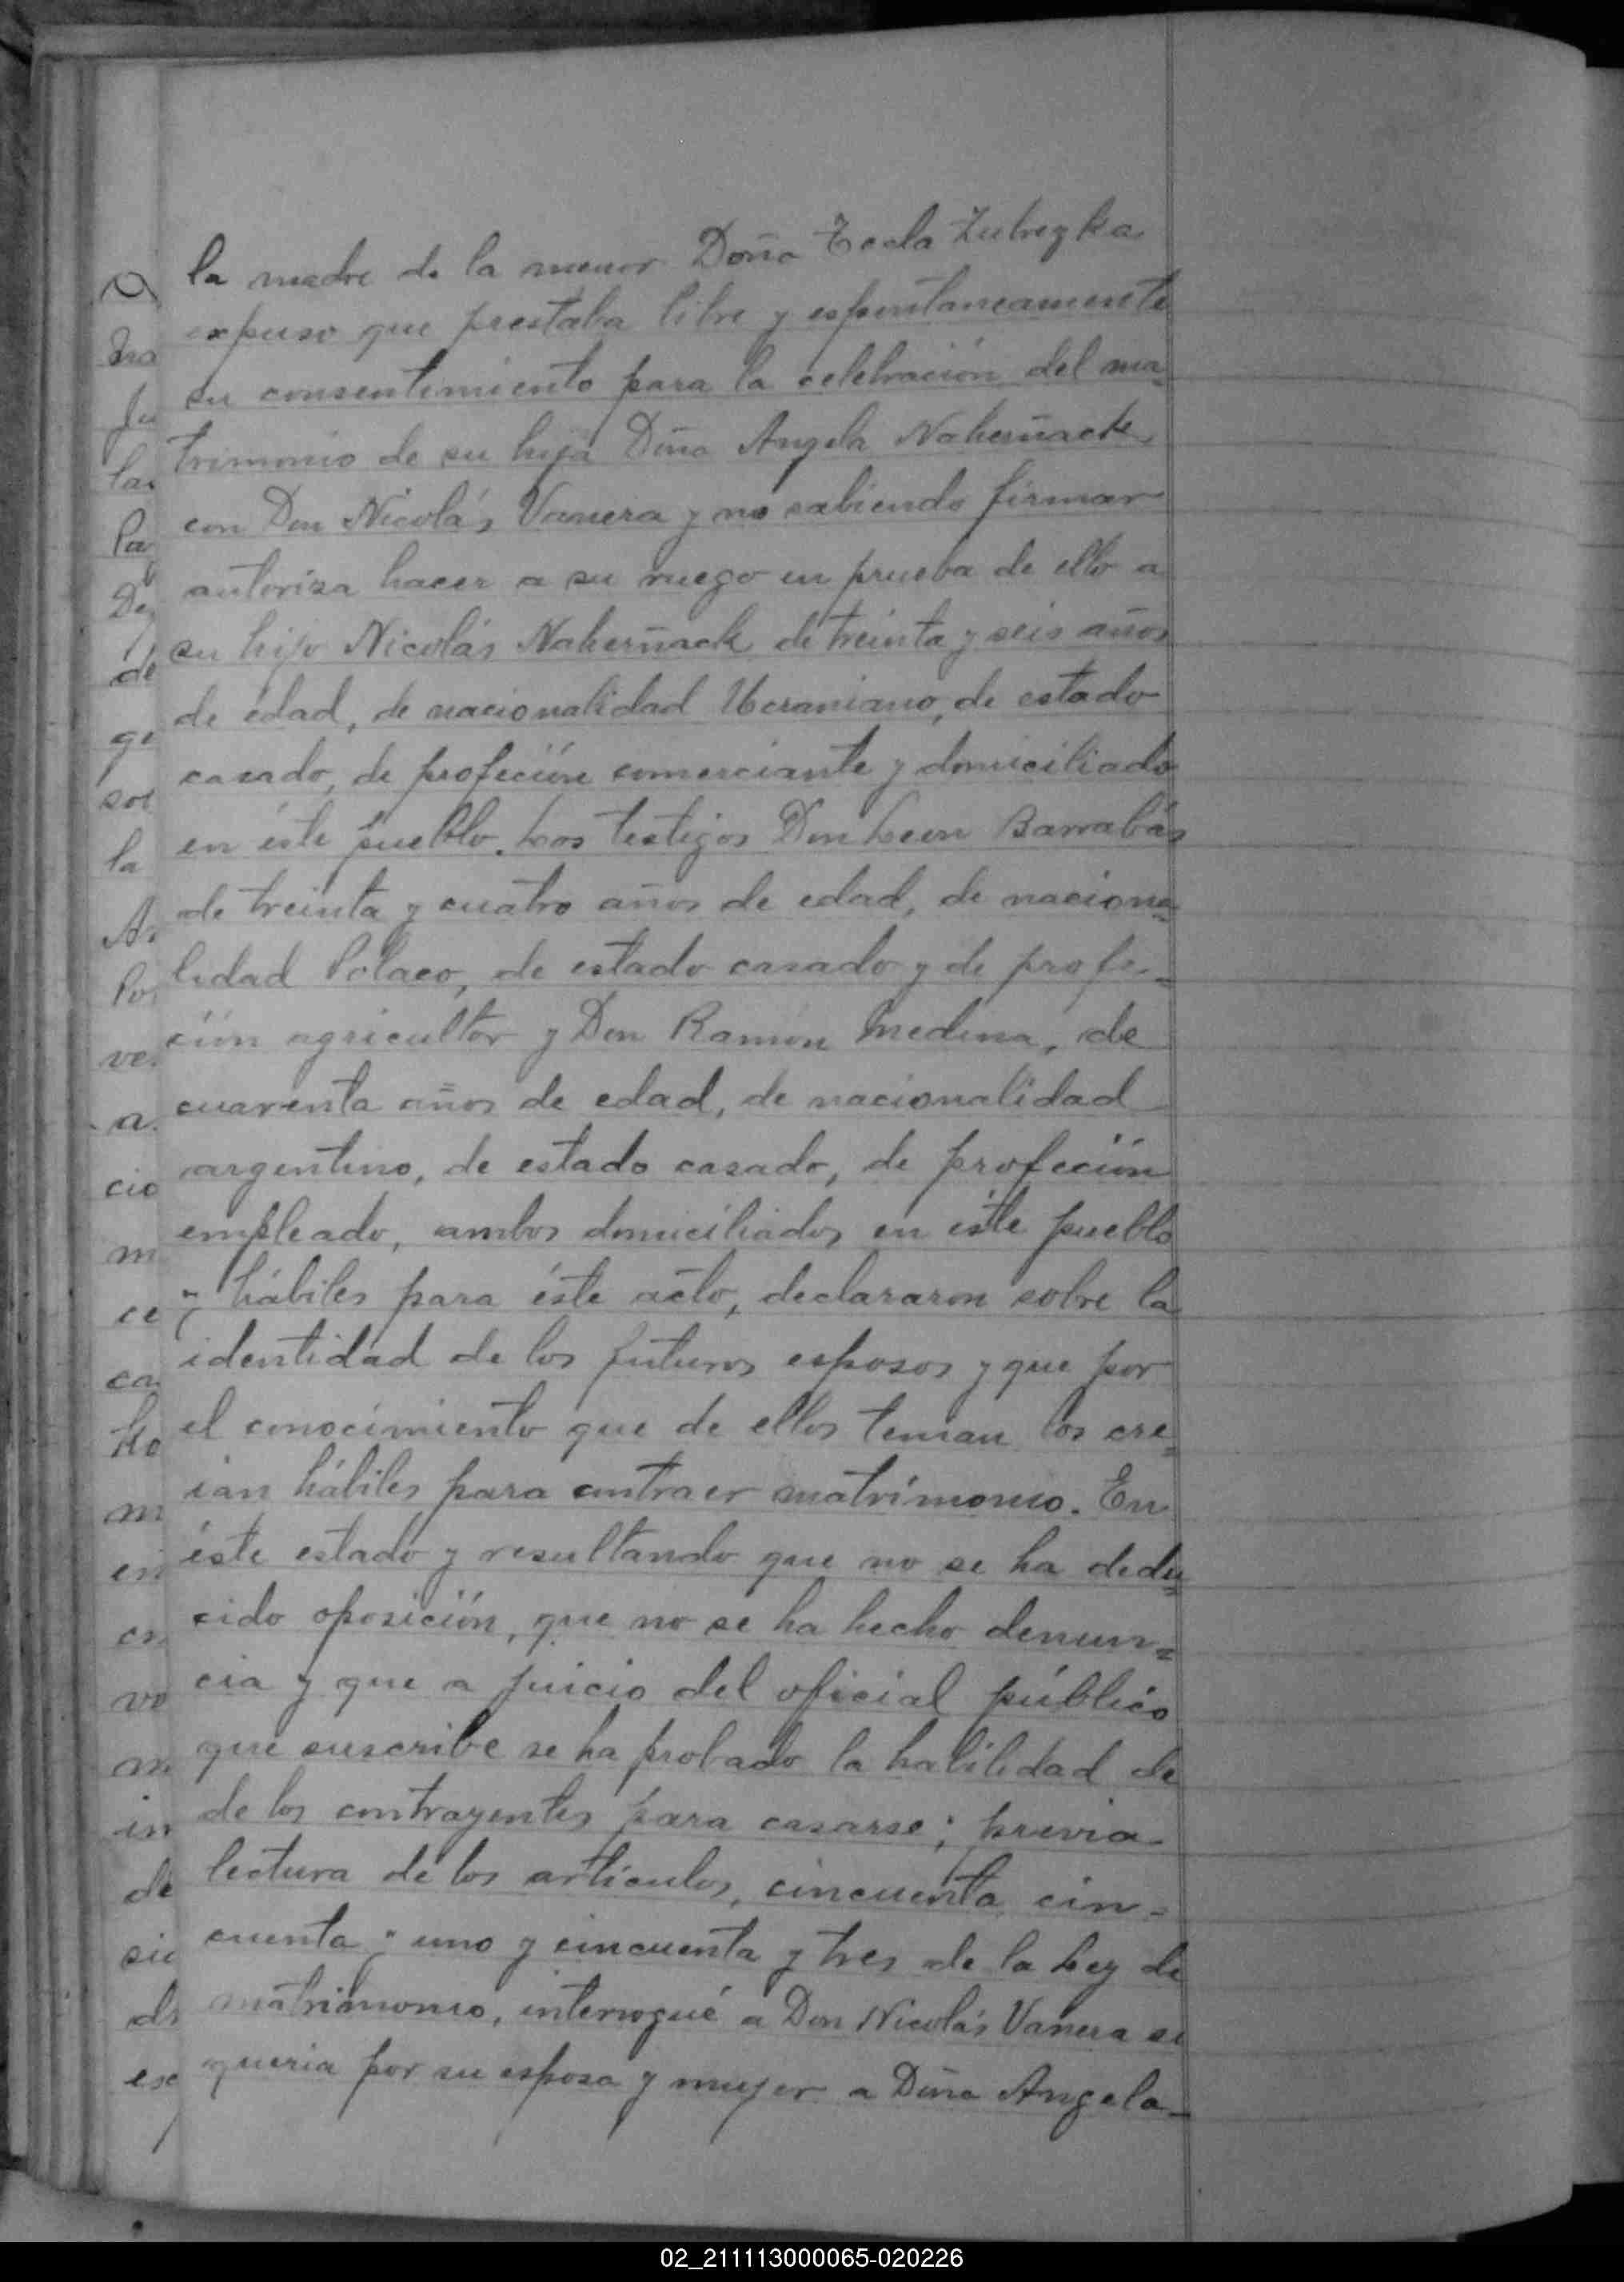 la madre de la menor Doña Tecla Zubreyka
expuso que prestaba libre y espontaneamente
su consentimiento para la celebración del ma=
trimonio de su hija Doña Angela Naherñack
con Don Nicolás Vanera y no sabiendo firmar
autoriza hacer a su ruego en prueba de ello a
su hijo Nicolás Naherñack de treinta y seis años
de edad, de nacionalidad Ucraniano, de estado
casado, de profeción comerciante y domiciliado
en éste pueblo. Los testigos Don Leon Barrabás
de treinta y cuatro años de edad, de naciona=
lidad Polaco, de estado casado y de profe=
ción agricultor y Don Ramón Medina, de
cuarenta años de edad, de nacionalidad
argentino, de estado casado, de profeción
empleado, ambos domiciliados en éste pueblo
y hábiles para éste acto, declararon sobre la
identidad de los futuros esposos y que por
el conocimiento que de ellos tenian los cre=
ian hábiles para contraer matrimonio. En
éste estado y resultando que no se ha dedu=
cido oposición, que no se ha hecho denun=
cia y que a juicio del oficial público
que suscribe se ha probado la habilidad de
de los contrayentes para casarse; previa
lectura de los artículos, cincuenta cin=
cuenta y uno y cincuenta y tres de la Ley de
matrimonio, interrogué a Don Nicolás Vanera si
queria por su esposa y mujer a Doña Angela
02_211113000065-020226